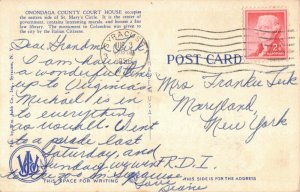 ONONDAGA COUNTY COURT HOUSE occupies
the eastern side of St. Mary's Circle. It is the center of
government, contains interesting murals, and houses a fine
law library. The monument of Columbus was given to
the city by the Italian Citizens.
SYRACUSE
POST CARD
Dear Grandma
I am having
a wonderful week
up to Virginia's
Michael is in
to everything
as usual. Went
to a ride last
Saturday, and
Sunday
to the in Syracuse
Love
Diane
Mrs Frankie Tuk
Maryland
New York
R.D.1
THIS SPACE FOR WRITING
THIS SIDE IS FOR THE ADDRESS